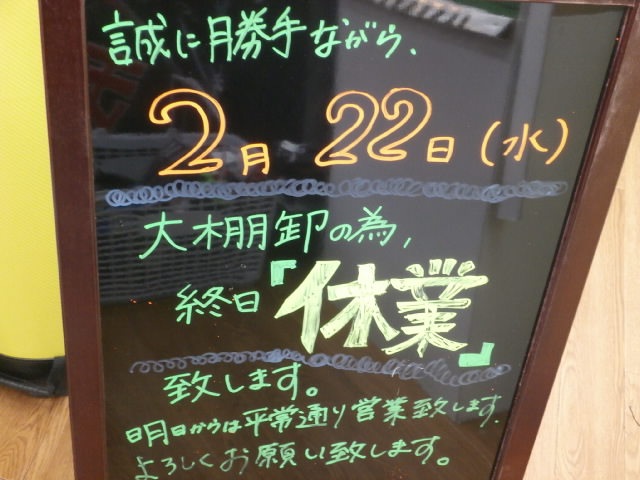 誠に勝手ながら、
2月 22日(水)
大棚卸の為、
終日『休業』
致します。
明日からは平常通り営業致します.
よろしくお願い致します。